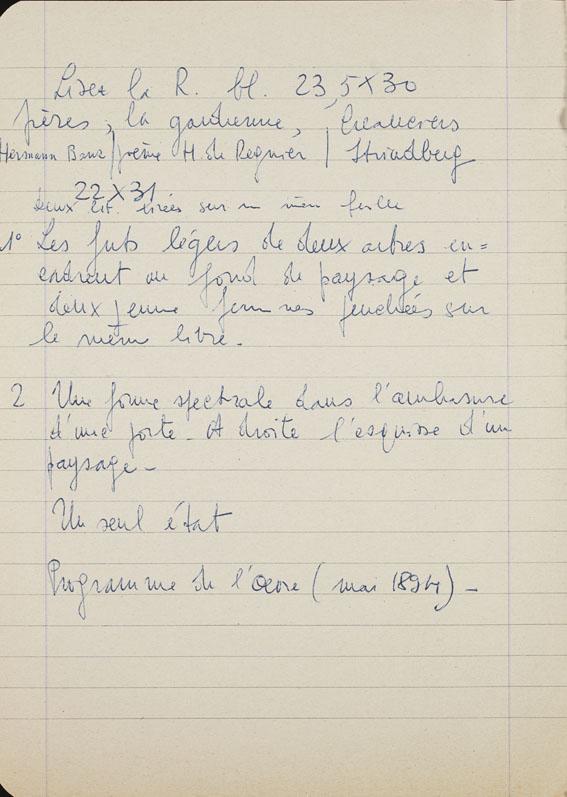 Lisez la R. bl. 23,5X30
frères, la gardienne, Créanciers
Hermann Banz / poème H. de Regnier / Strindberg
22 X 31
deux lit. tirées sur un même feuille
1° Les futs légers de deux arbres en=
cadrent un fond de paysage et
deux jeune femmes penchées sur
le même libre.
2 Une forme spectrale dans l'embrasure
d'une porte. A droite l'esquisse d'un
paysage -
Un seul état
Programme de l'Œuvre (mai 1894) -